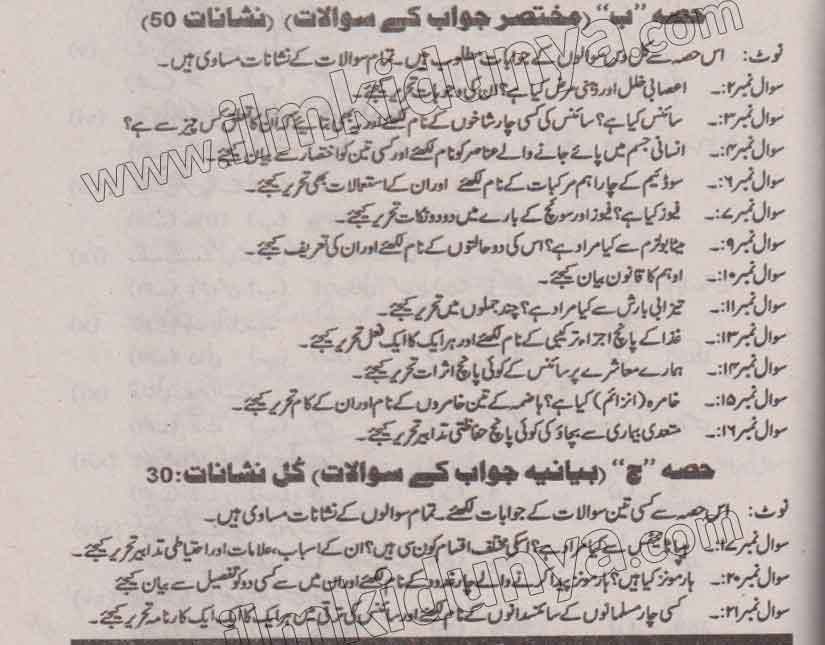 حصہ "ب" (مختصر جواب کے سوالات) (نشانات 50)
نوٹ: اس حصہ سے کل دس سوالوں کے جوابات مطلوب ہیں۔ تمام سوالات کے نشانات مساوی ہیں۔
سوال نمبر۲:۔ اعصابی خلل اور ذہنی مرض کیا ہے؟ ان کی وجوہات تحریر کیجئے۔
سوال نمبر۳:۔ سائنس کیا ہے؟ سائنس کی کسی چار شاخوں کے نام لکھئے اور یہ بھی بتائیے کہ ان کا تعلق کس چیز سے ہے؟
سوال نمبر۴:۔ انسانی جسم میں پائے جانے والے عناصر کو نام لکھئے اور کسی تین کو اختصار سے بیان کیجئے۔
سوال نمبر۶:۔ سوڈیم کے چار اہم مرکبات کے نام لکھئے اور ان کے استعمالات بھی تحریر کیجئے۔
سوال نمبر۷:۔ فیوز کیا ہے؟ فیوز اور سوئچ کے بارے میں دو دو نکات تحریر کیجئے۔
سوال نمبر۹:۔ میٹابولزم سے کیا مراد ہے؟ اس کی دو حالتوں کے نام لکھئے اور ان کی تعریف کیجئے۔
سوال نمبر۱۰:۔ اوہم کا قانون بیان کیجئے۔
سوال نمبر۱۱:۔ تیزابی بارش سے کیا مراد ہے؟ چند جملوں میں تحریر کیجئے۔
سوال نمبر۱۳:۔ غذا کے پانچ اجزاء ترکیبی کے نام لکھئے اور ہر ایک کا ایک فعل تحریر کیجئے۔
سوال نمبر۱۴:۔ ہمارے معاشرے پر سائنس کے کوئی پانچ اثرات تحریر کیجئے۔
سوال نمبر۱۵:۔ خامرہ (انزائم) کیا ہے؟ ہاضمہ کے تین خامروں کے نام اور ان کے کام تحریر کیجئے۔
سوال نمبر۱۶:۔ متعدی بیماری سے بچاؤ کی کوئی پانچ حفاظتی تدابیر تحریر کیجئے۔
حصہ "ج" (بیانیہ جواب کے سوالات) کُل نشانات: 30
نوٹ: اس حصہ سے کسی تین سوالات کے جوابات لکھئے۔ تمام سوالوں کے نشانات مساوی ہیں۔
سوال نمبر۱۷:۔ ہیپاٹائٹس سے کیا مراد ہے؟ اسکی مختلف اقسام کون سی ہیں؟ ان کے اسباب، علامات اور احتیاطی تدابیر تحریر کیجئے۔
سوال نمبر۲۰:۔ ہارمونز کیا ہیں؟ ہارمونز پیدا کرنے والے چار غدود کے نام لکھئے اور ان میں سے کسی دو کو تفصیل سے بیان کیجئے
سوال نمبر۲۱:۔ کسی چار مسلمانوں کے سائنسدانوں کے نام لکھئے اور سائنس کی ترقی میں ہر ایک کا ایک ایک کارنامہ تحریر کیجئے۔
www.ilmkidunya.com
ilmkidunya.com